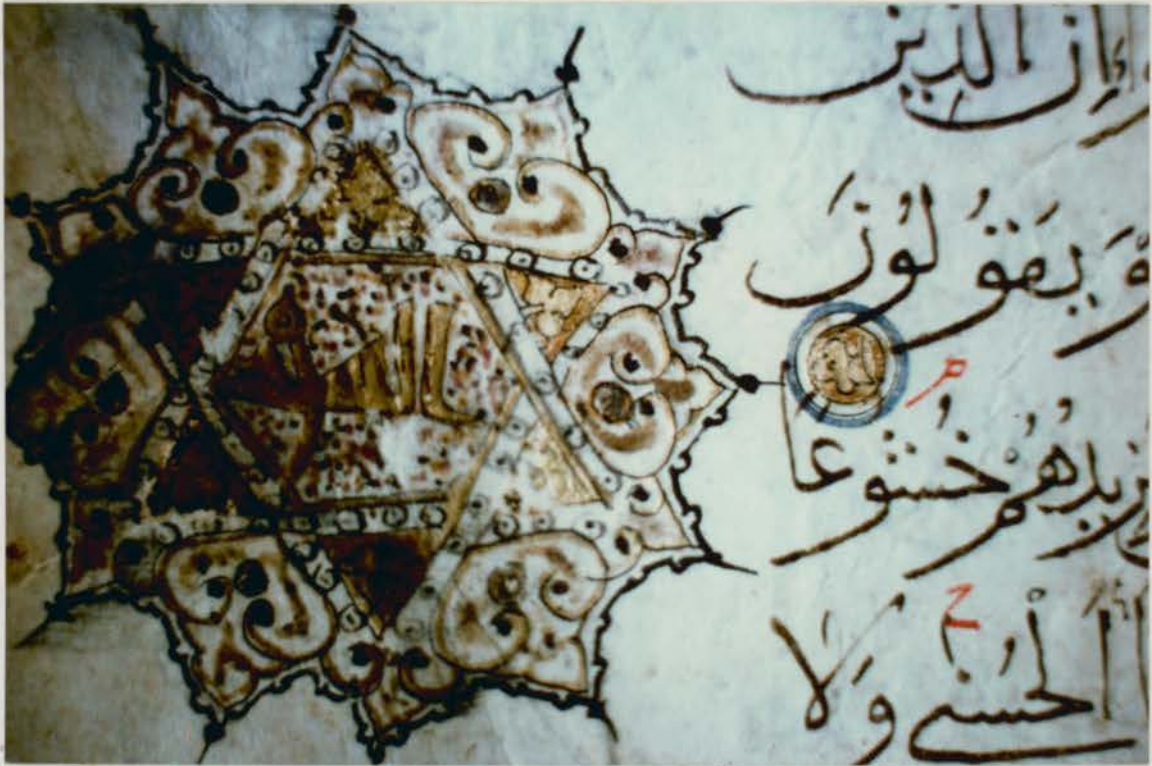 إن الذين
وَّيَقُولُونَ
م
يزيدهُمْ خُشُوعًا
ج
الْحُسْنى وَلَا